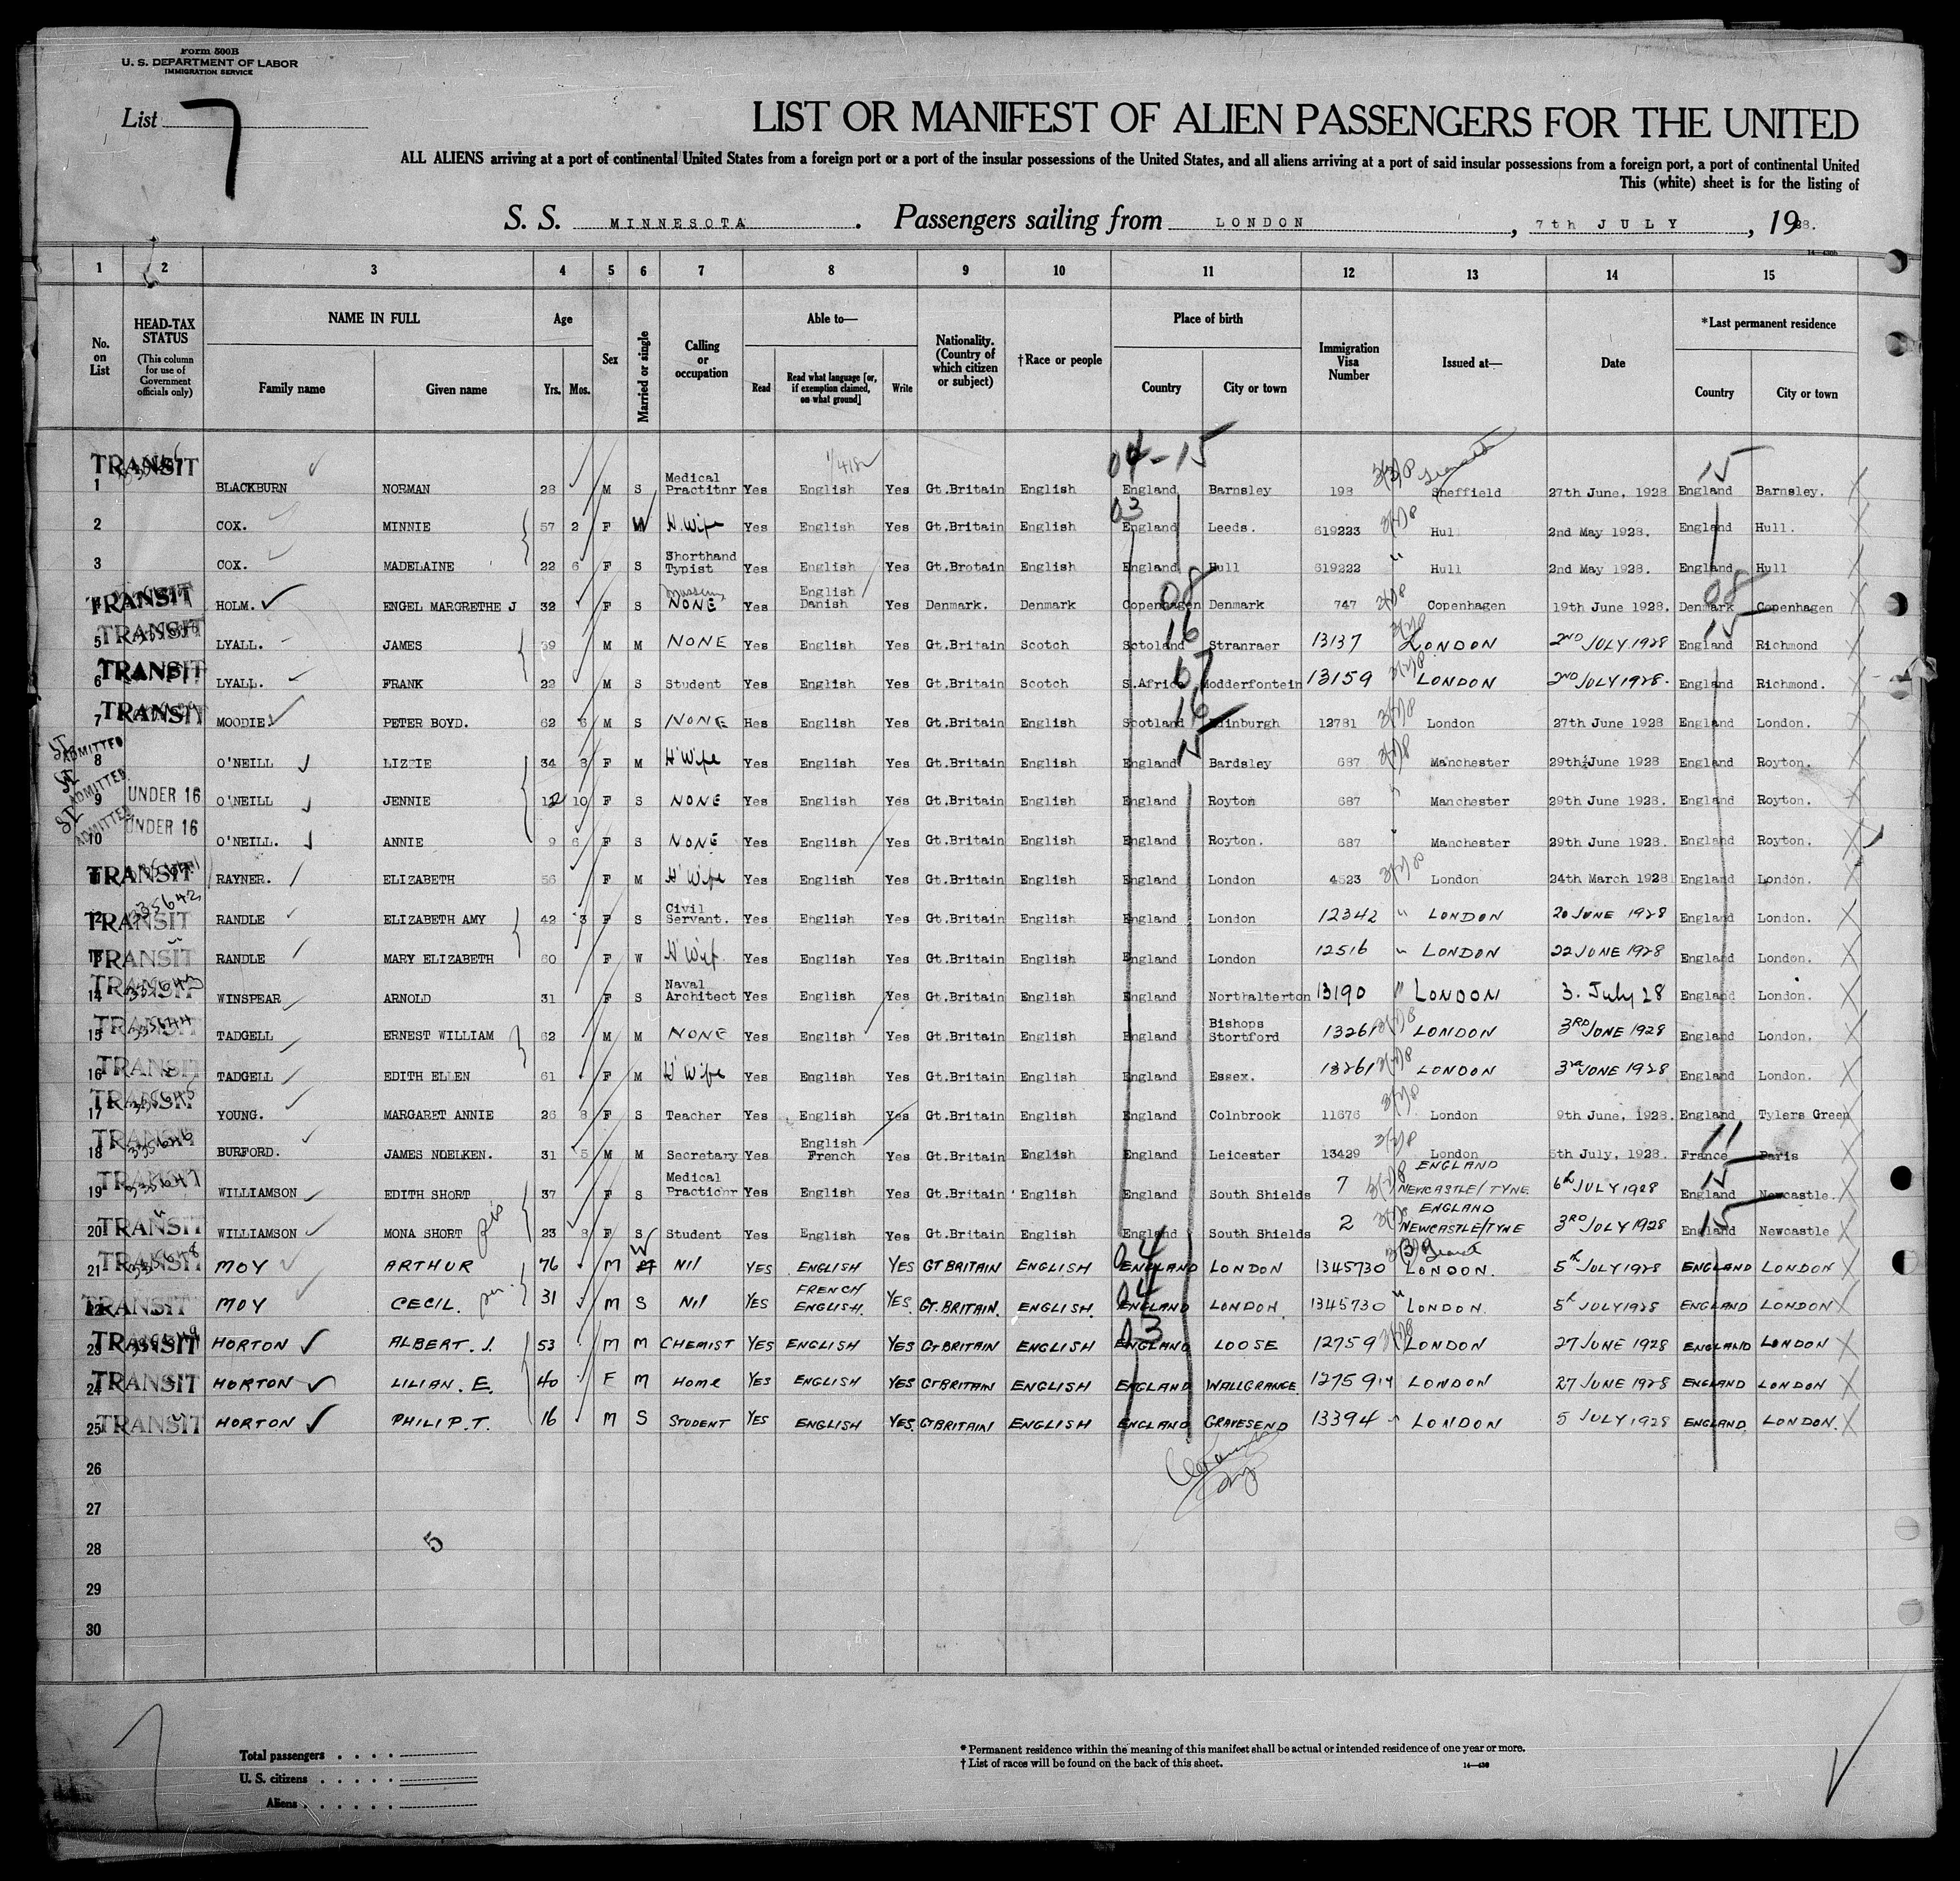 Form 500B
U. S. DEPARTMENT OF LABOR
IMMIGRATION SERVICE
List 7
LIST OR MANIFEST OF ALIEN PASSENGERS FOR THE UNITED
ALL ALIENS arriving at a port of continental United States from a foreign port or a port of the insular possessions of the United States, and all aliens arriving at a port of said insular possessions from a foreign port, a port of continental United
This (white) sheet is for the listing of
S. S. MINNESOTA. Passengers sailing from LONDON, 7th JULY, 1928.
1 2 3 4 5 6 7 8 9 10 11 12 13 14 15
No. on List
HEAD-TAX STATUS
(This column for use of Government officials only)
NAME IN FULL
Family name Given name
Age
Yrs. Mos.
Sex
Married or single
Calling or occupation
Able to—
Read
Read what language [or, if exemption claimed, on what ground]
Write
Nationality. (Country of which citizen or subject)
†Race or people
Place of birth
Country City or town
Immigration Visa Number
Issued at—
Date
*Last permanent residence
Country City or town
04-15 15
TRANSIT 1 BLACKBURN NORMAN 28 M S Medical Practitnr Yes English Yes Gt.Britain English England Barnsley 198 Sheffield 27th June, 1928 England Barnsley.
03
2 COX. MINNIE 57 2 F W H.Wife Yes English Yes Gt.Britain English England Leeds. 619223 Hull 2nd May 1928. England Hull.
3 COX. MADELAINE 22 6 F S Shorthand Typist Yes English Yes Gt.Brotain English England Hull 619222 " Hull 2nd May 1928. England Hull
TRANSIT 4 HOLM. ENGEL MARGRETHE J 32 F S NONE Yes English Danish Yes Denmark. Denmark Copenhagen 08 Denmark 747 Copenhagen 19th June 1928. Denmark 08 Copenhagen
TRANSIT 5 LYALL. JAMES 39 M M NONE Yes English Yes Gt.Britain Scotch Sctoland 16 Stranraer 13137 LONDON 2ND JULY 1928 England 15 Richmond
TRANSIT 6 LYALL. FRANK 22 M S Student Yes English Yes Gt.Britain Scotch S.Africa 67 Modderfontein 13159 LONDON 2ND JULY 1928. England Richmond.
TRANSIT 7 MOODIE. PETER BOYD. 62 6 M S NONE Hes English Yes Gt.Britain English Scotland 16 Edinburgh 12781 London 27th June 1928 England London.
ADMITTED 8 O'NEILL LIZZIE 34 8 F M H'Wife Yes English Yes Gt.Britain English England Bardsley 687 Manchester 29th June 1928 England Royton.
ADMITTED 9 UNDER 16 O'NEILL JENNIE 12 10 F S NONE Yes English Yes Gt.Britain English England Royton 687 Manchester 29th June 1928. England Royton.
ADMITTED 10 UNDER 16 O'NEILL. ANNIE 9 6 F S NONE Yes English Yes Gt.Britain English England Royton. 687 Manchester 29th June 1928. England Royton.
TRANSIT RAYNER. ELIZABETH 56 F M H'Wife Yes English Yes Gt.Britain English England London 4523 London 24th March 1928 England London.
TRANSIT 12 335642 RANDLE ELIZABETH AMY 42 3 F S Civil Servant. Yes English Yes Gt.Britain English England London 12342 " LONDON 20 JUNE 1928 England London.
TRANSIT 13 " RANDLE MARY ELIZABETH 60 F W H'Wife Yes English Yes Gt.Britain English England London 12516 " LONDON 22 JUNE 1928 England London.
TRANSIT 14 335643 WINSPEAR ARNOLD 31 F S Naval Architect Yes English Yes Gt.Britain English England Northalterton 13190 " LONDON 3. July 28 England London.
TRANSIT 15 335644 TADGELL ERNEST WILLIAM 62 M M NONE Yes English Yes Gt.Britain English England Bishops Stortford 13261 LONDON 3RD JUNE 1928 England London.
TRANSIT 16 " TADGELL EDITH ELLEN 61 F M H'Wife Yes English Yes Gt.Britain English England Essex. 13261 LONDON 3rd JUNE 1928 England London.
TRANSIT 17 335645 YOUNG. MARGARET ANNIE 26 8 F S Teacher Yes English Yes Gt.Britain English England Colnbrook 11676 London 9th June, 1928. England Tylers Green
TRANSIT 18 335646 BURFORD. JAMES NOELKEN. 31 5 M M Secretary Yes English French Yes Gt.Britain English England Leicester 13429 London 5th July, 1928. France 11 Paris
TRANSIT 19 335647 WILLIAMSON EDITH SHORT 37 F S Medical Practionr Yes English Yes Gt.Britain English England South Shields 7 ENGLAND NEWCASTLE/TYNE. 6th JULY 1928 England 15 Newcastle.
TRANSIT 20 " WILLIAMSON MONA SHORT 23 8 F S Student Yes English Yes Gt.Britain English England South Shields 2 ENGLAND NEWCASTLE/TYNE 3RD JULY 1928 England 15 Newcastle
TRANSIT 21 335648 MOY ARTHUR 76 M W Nil YES ENGLISH YES GT BRITAIN ENGLISH 04 ENGLAND LONDON 1345730 LONDON. 5th JULY 1928 ENGLAND LONDON
TRANSIT 22 MOY CECIL. 31 M S Nil YES FRENCH ENGLISH. YES. GT. BRITAIN. ENGLISH. 04 ENGLAND LONDON 1345730 " LONDON. 5th JULY 1928 ENGLAND LONDON
TRANSIT 23 HORTON ALBERT. J. 53 M M CHEMIST YES ENGLISH YES GT BRITAIN ENGLISH 03 ENGLAND LOOSE 12759 LONDON 27 JUNE 1928 ENGLAND LONDON
TRANSIT 24 HORTON LILIAN. E. 40 F M HOME YES ENGLISH YES GT BRITAIN ENGLISH ENGLAND WALLGRANCE. 12759 LONDON 27 JUNE 1928 ENGLAND LONDON
TRANSIT 25 HORTON PHILIP. T. 16 M S STUDENT YES ENGLISH YES. GT BRITAIN ENGLISH ENGLAND GRAVESEND 13394 " LONDON 5 JULY 1928 ENGLAND. LONDON.
26
27
28 5
29
30
Total passengers
U. S. citizens
Aliens
* Permanent residence within the meaning of this manifest shall be actual or intended residence of one year or more.
† List of races will be found on the back of this sheet.
14—430